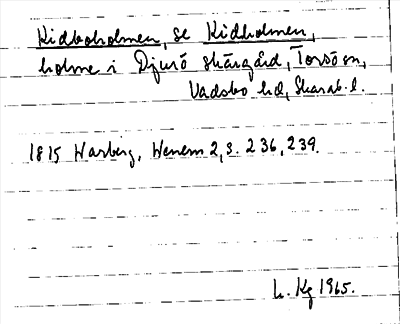 Kidboholmen, se Kidholmen,
holme i Djurö skärgård, Torsö sn,
Vadsbo hd, Skarab. l.
1815 Warberg, Wenern 2, s. 236, 239.
L. Kg 1965.